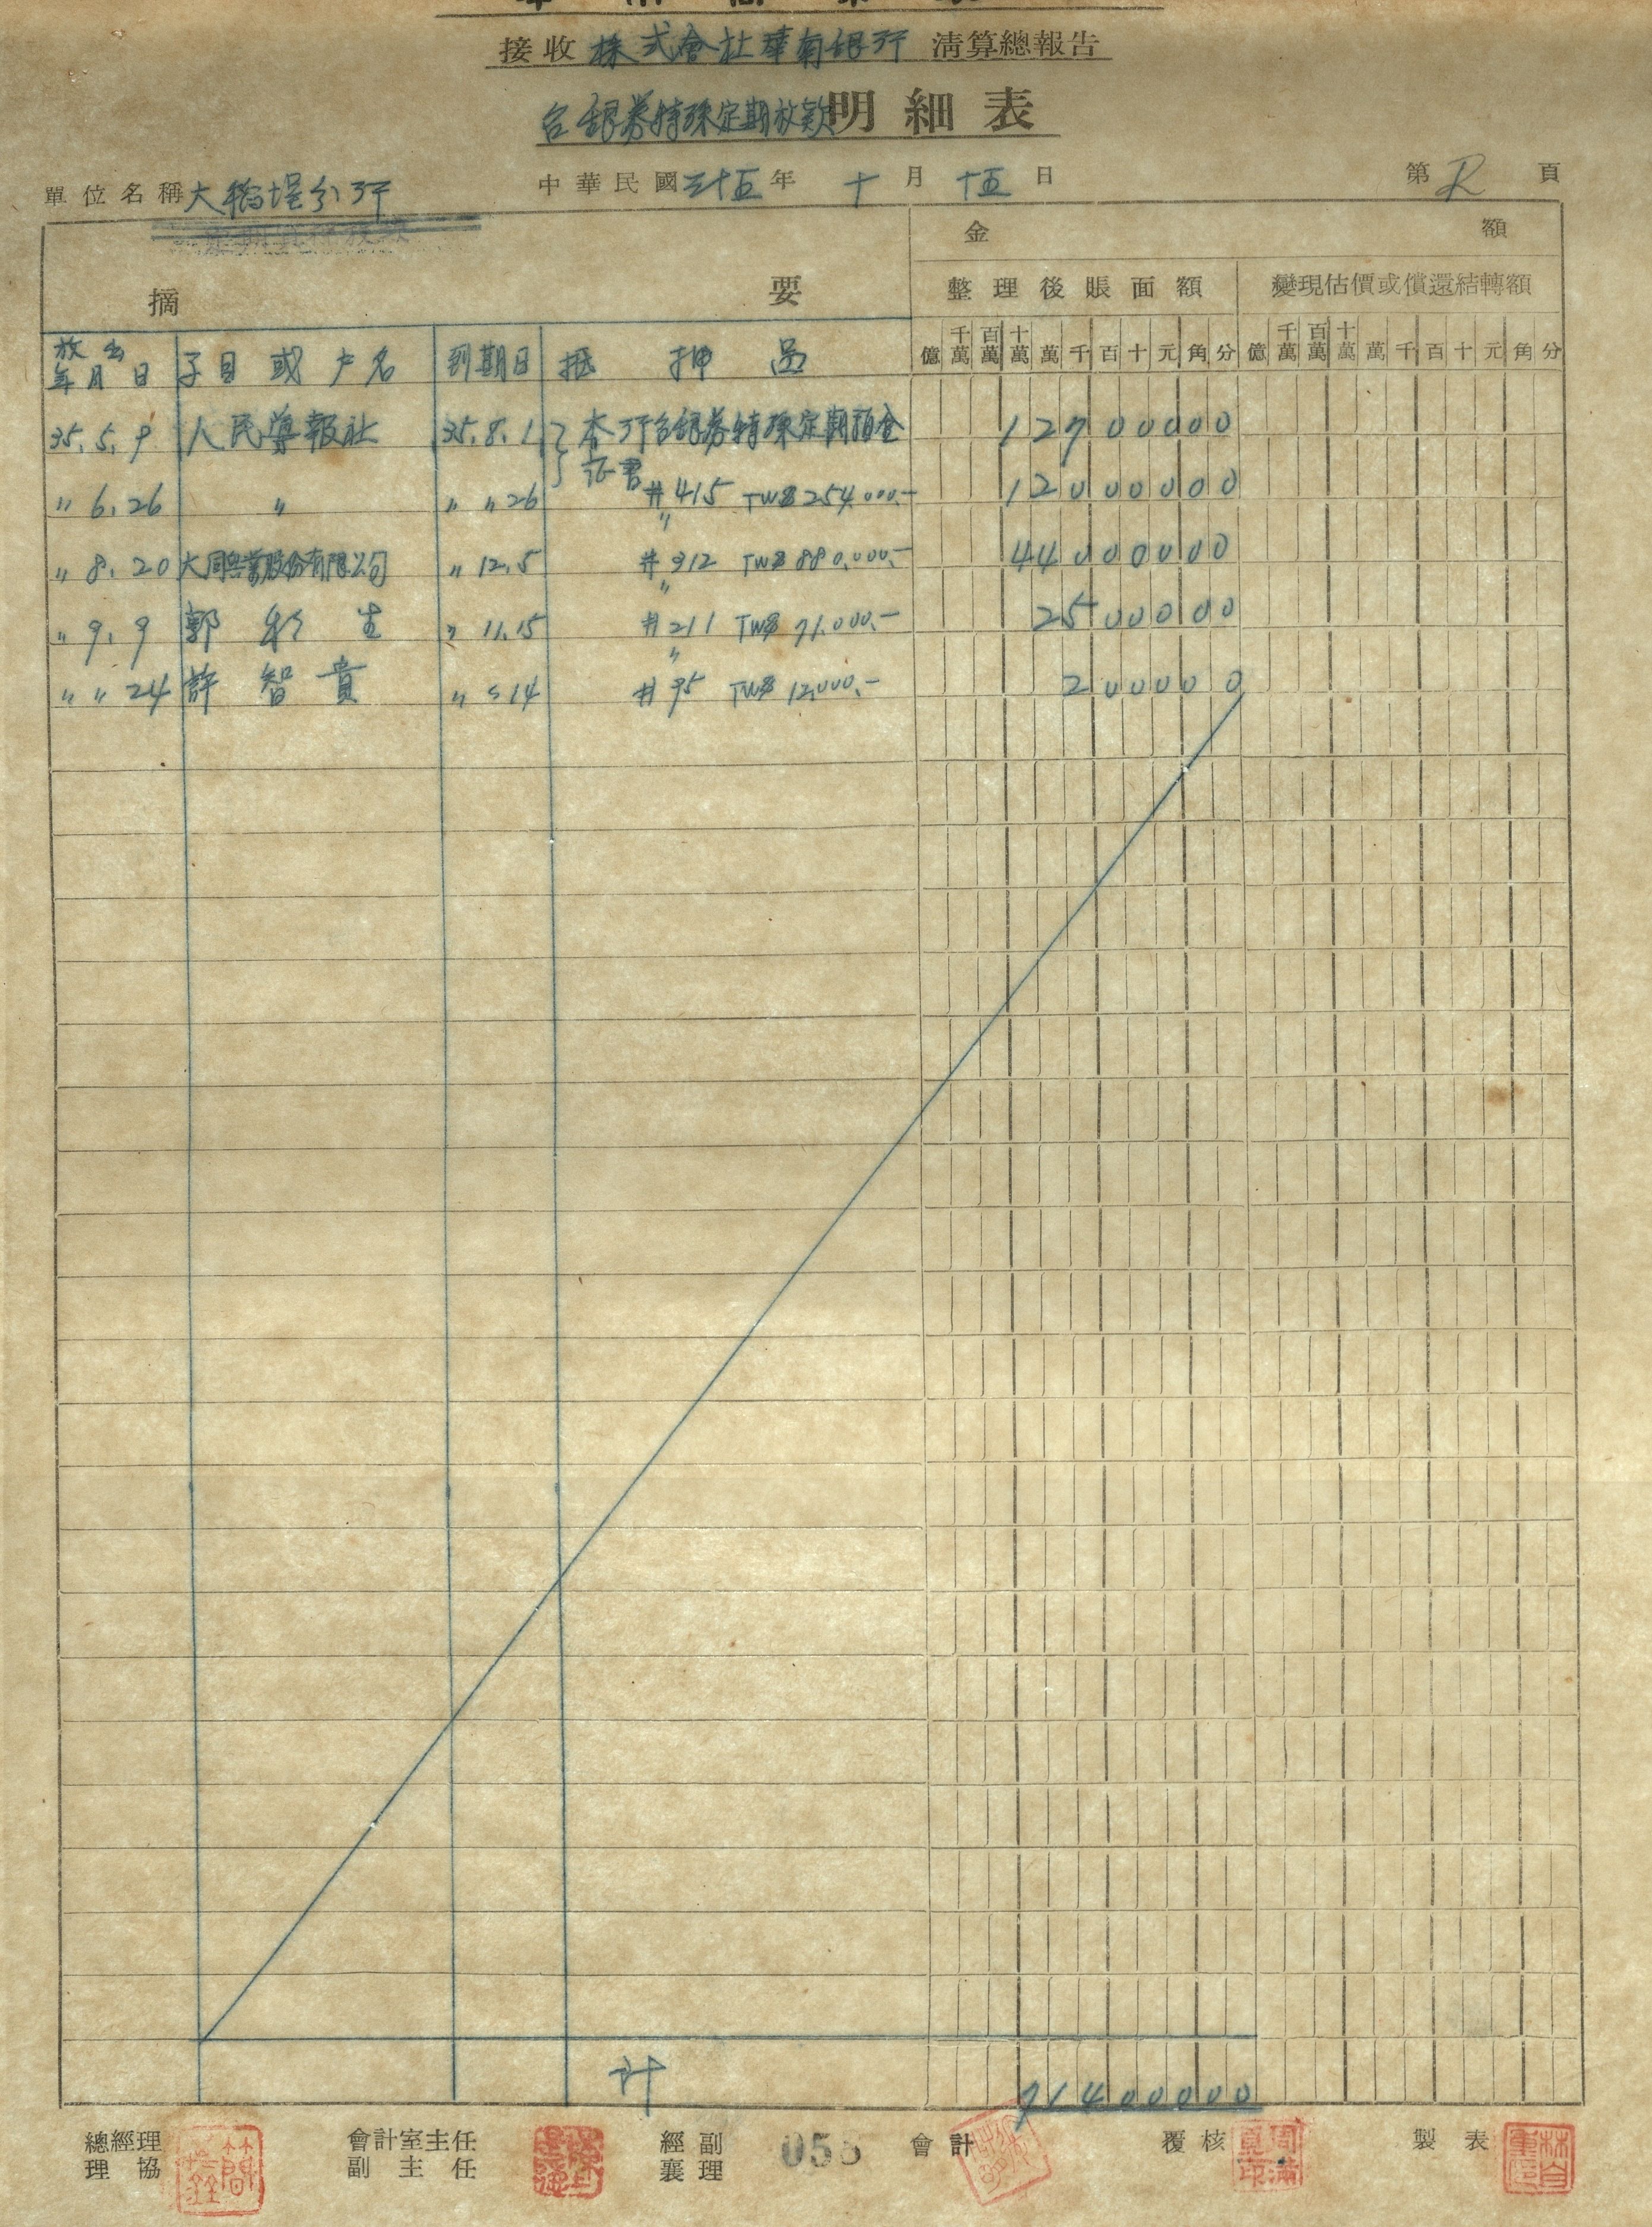 接收 株式會社華南銀行 清算總報告
台銀券特殊定期放款明細表
單位名稱 大稻埕分行 中華民國 三十五 年 十 月 十五 日 第 2 頁
金 額
摘 要 整理後賬面額 變現估價或償還結轉額
億 千萬 百萬 十萬 萬 千 百 十 元 角 分 億 千萬 百萬 十萬 萬 千 百 十 元 角 分
放出年月日 子目或户名 到期日 抵押品
35.5.9 人民導報社 35.8.1 本行台銀券特殊定期預金 12700000
証書
〃 6.26 〃 〃 〃 26 #415 TW$254.000.- 12000000
〃 8.20 大同興業股份有限公司 〃 12.5 〃 #312 TW$880.000.- 44000000
〃 9.9 郭彩生 〃 11.15 〃 #211 TW$71.000.- 2500000
〃 〃 24 許智貴 〃 5 14 〃 #95 TW$12.000.- 200000
計 71400000
總經理 協理 會計室主任 副主任 經副襄理 055 會計 覆核 製表